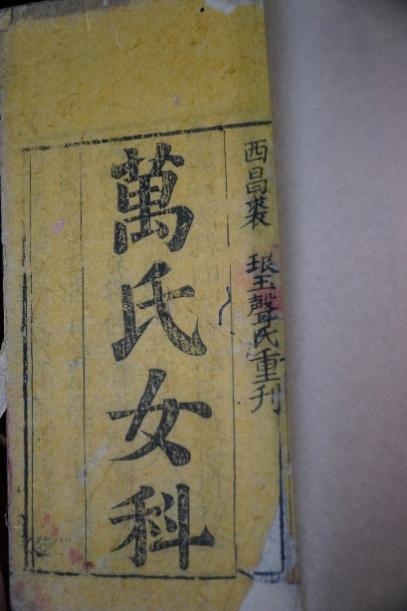 西昌裘 琅玉聲氏重刊
萬氏女科